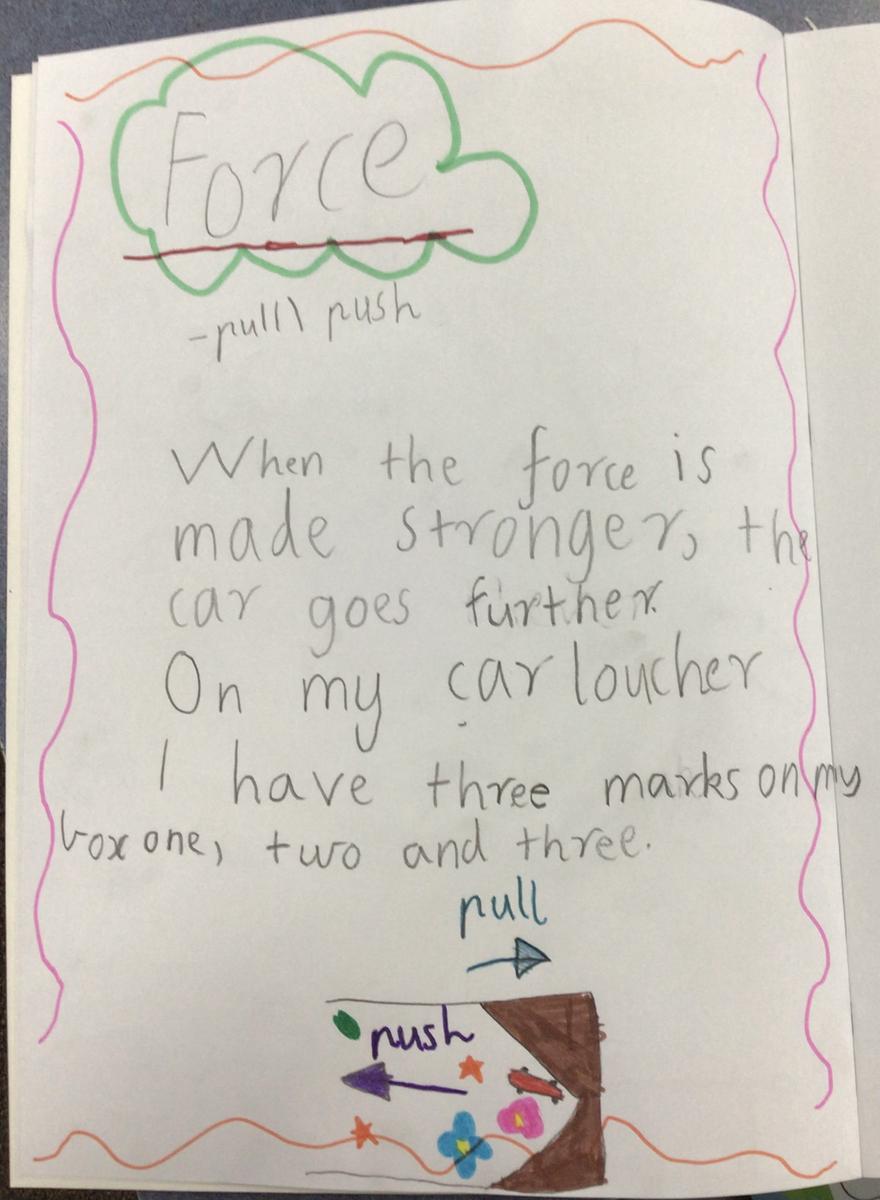 Force
-pull\ push
When the force is
made stronger, the
car goes further.
On my car loucher
I have three marks on my
box one, two and three.
pull
push